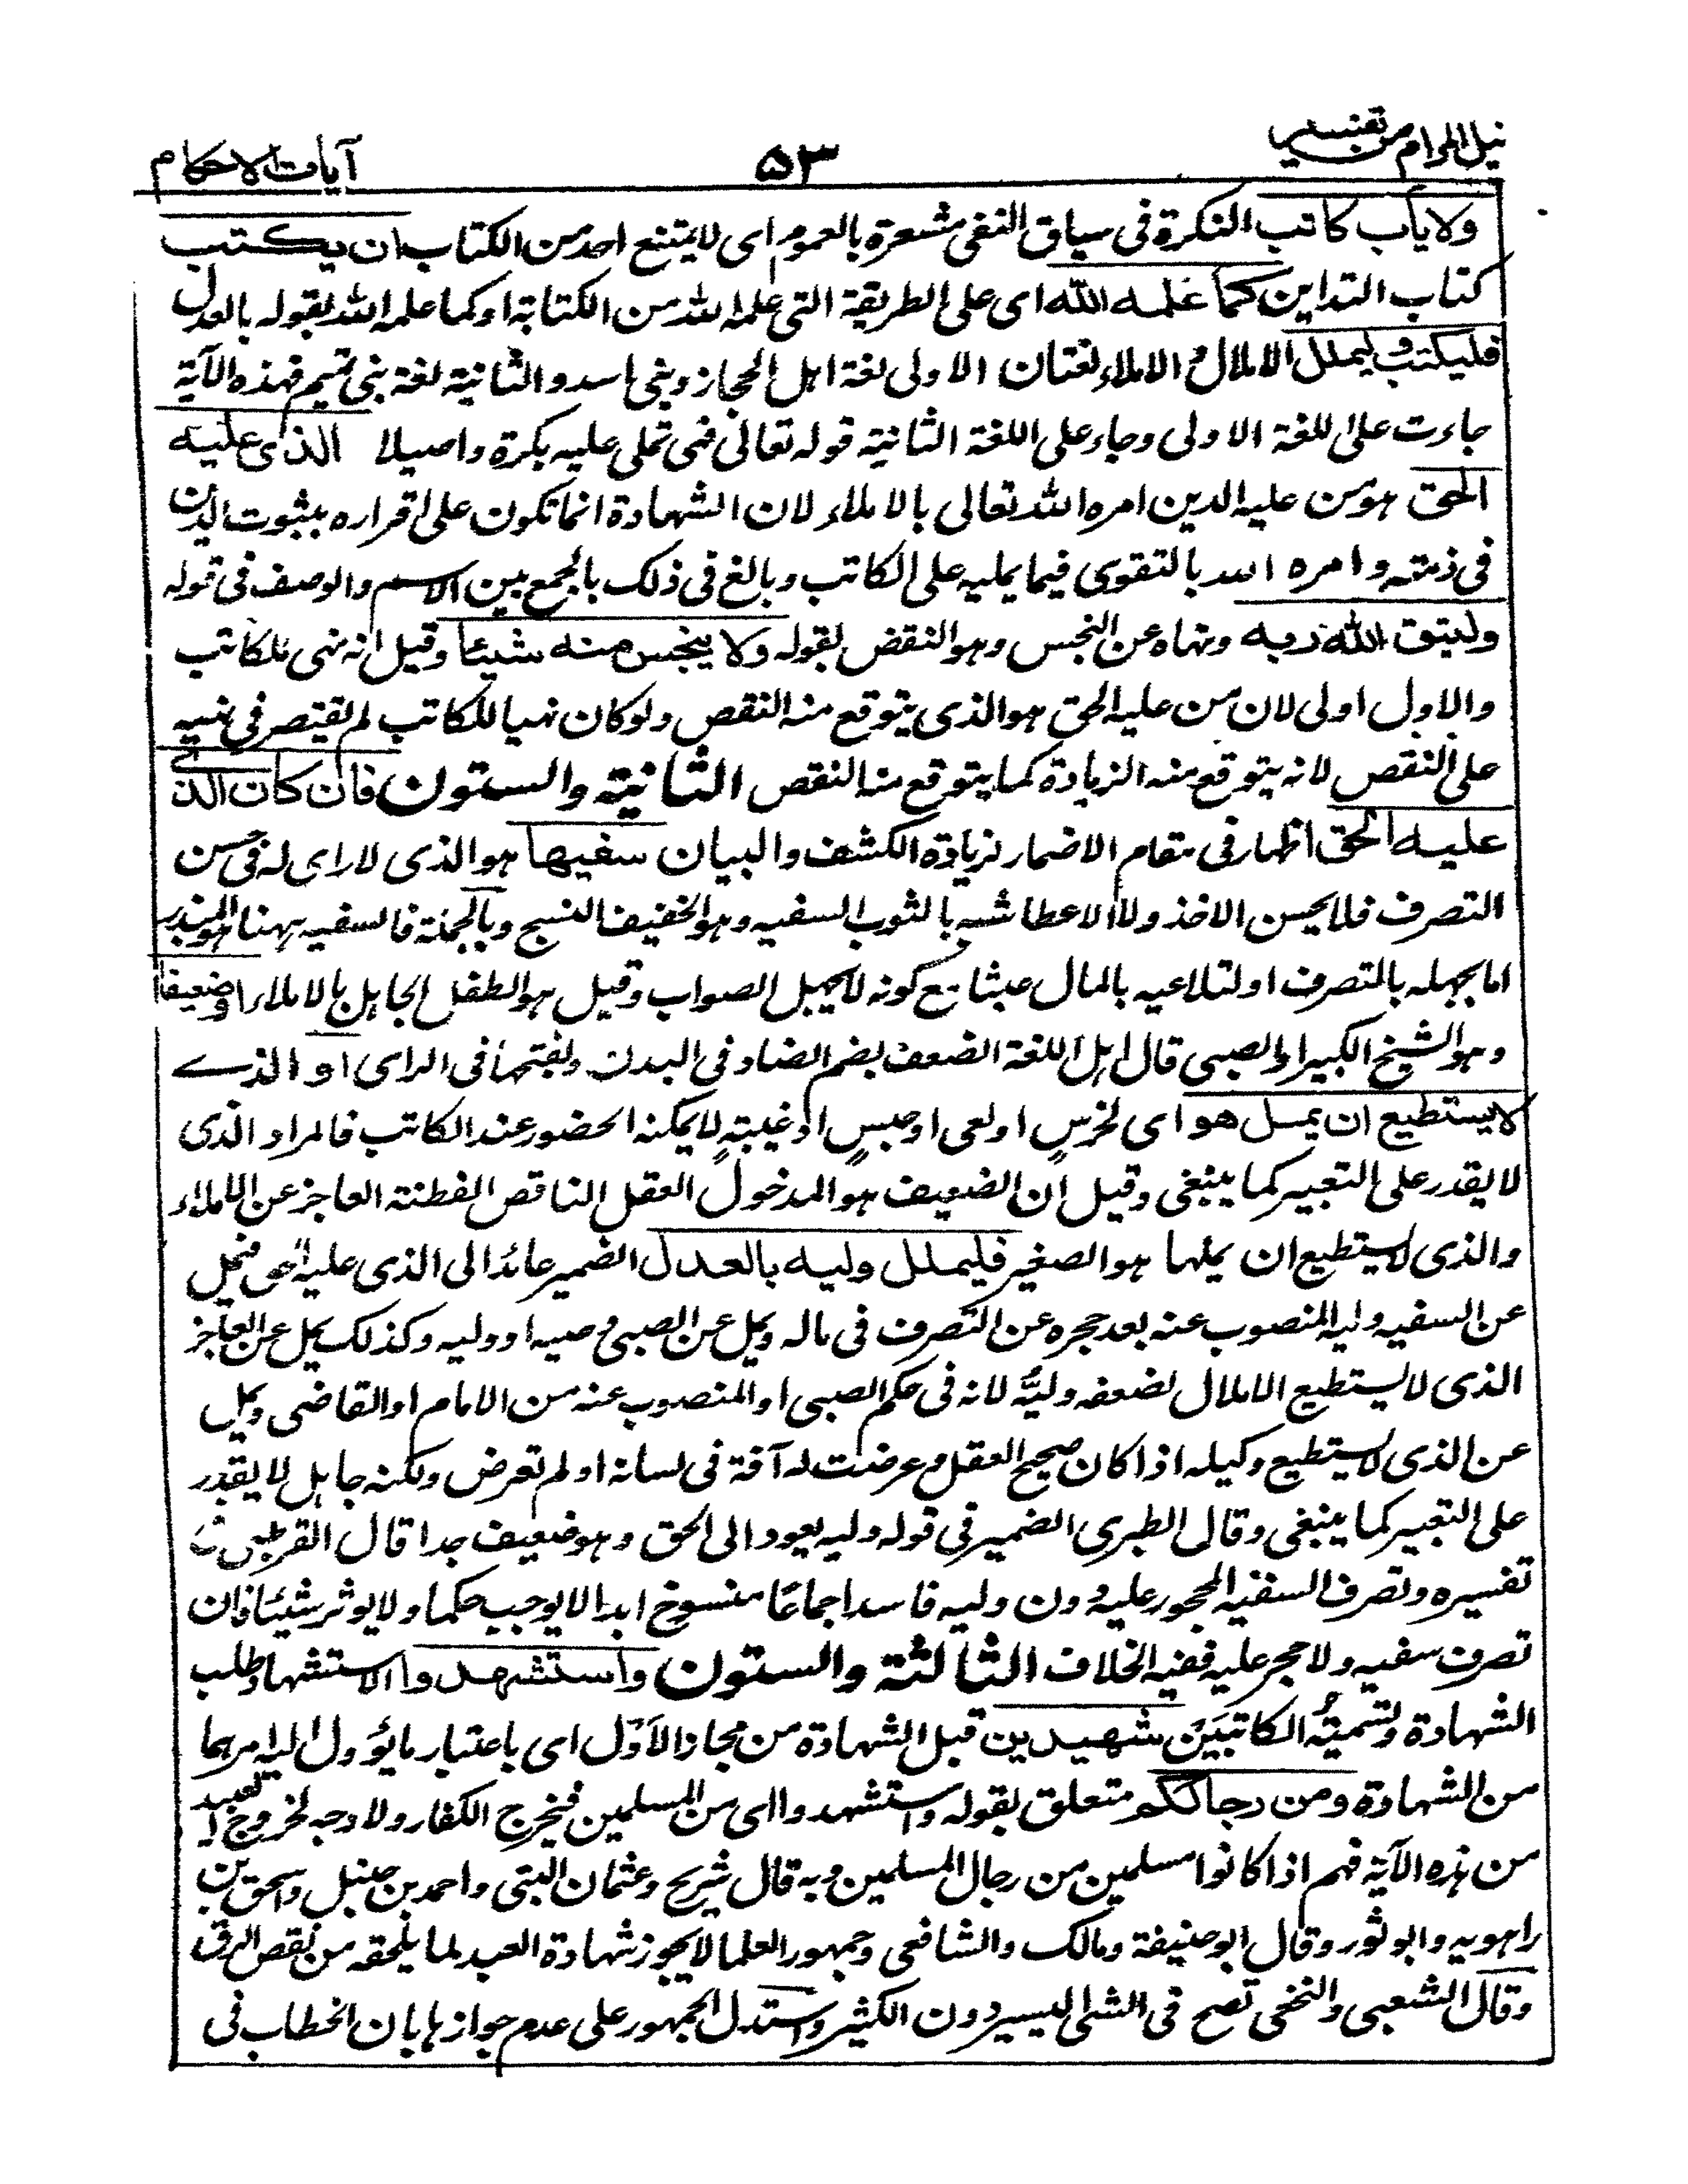 نيل المرام من تفسير
٥٣
آيات الاحكام
ولا يأب كاتب النكرة فى سياق النفى مشعرة بالعموم اى لا يمتنع احد من الكتاب ان يكتب
كتاب التداين كما علمه الله اى على الطريقة التى علمه الله من الكتابة او كما علمه الله بقوله بالعدل
فليكتب وليملل الاملال والاملاء لغتان الاولى لغة اهل الحجاز وبنى اسد والثانية لغة بنى تميم فهذه الآية
جاءت على اللغة الاولى وجاء على اللغة الثانية قوله تعالى فهى تملى عليه بكرة واصيلا الذى عليه
الحق هو من عليه الدين امره الله تعالى بالاملاء لان الشهادة انما تكون على اقراره بثبوت الدين
فى ذمته وامره الله بالتقوى فيما يمليه على الكاتب وبالغ فى ذلك بالجمع بين الاسم والوصف فى قوله
وليتق الله ربه ونهاه عن البخس وهو النقص بقوله ولا يبخس منه شيئا وقيل انه نهى للكاتب
والاول اولى لان من عليه الحق هو الذى يتوقع منه النقص ولو كان نهيا للكاتب لم يقتصر فى نهيه
على النقص لانه يتوقع منه الزيادة كما يتوقع منه النقص الثانية والستون فان كان الذى
عليه الحق اظهار فى مقام الاضمار لزيادة الكشف والبيان سفيها هو الذى لا راى له فى حسن
التصرف فلا يحسن الاخذ ولا الاعطا شبه بالثوب السفيه وهو الخفيف النسج وبالجملة فالسفيه ههنا هو المبذر
اما بجهله بالتصرف او لتلاعبه بالمال عبثا مع كونه لا يجهل الصواب وقيل هو الطفل الجاهل بالاملاء او ضعيفا
وهو الشيخ الكبير او الصبى قال اهل اللغة الضعف بضم الضاد فى البدن وبفتحها فى الراى او الذے
لا يستطيع ان يمل هو اى لخرسٍ او لعى او حبسٍ او غيبتهٍ لا يمكنه الحضور عند الكاتب فالمراد الذى
لا يقدر على التعبير كما ينبغى وقيل ان الضعيف هو المدخول العقل الناقص الفطنة العاجز عن الاملاء
والذى لا يستطيع ان يملها هو الصغير فليملل وليه بالعدل الضمير عائد الى الذى عليه الحق فيمل
عن السفيه وليه المنصوب عنه بعد حجره عن التصرف فى ماله ويمل عن الصبى وصيه او وليه وكذلك يمل عن العاجز
الذى لا يستطيع الاملال لضعفه وليُّه لانه فى حكم الصبى او المنصوب عنه من الامام او القاضى ويمل
عن الذى لا يستطيع وكيله اذا كان صحيح العقل وعرضت له آفة فى لسانه او لم تعرض ولكنه جاهل لا يقدر
على التعبير كما ينبغى وقال الطبرى الضمير فى قوله وليه يعود الى الحق وهو ضعيف جدا قال القرطبى فى
تفسيره وتصرف السفيه المحجور عليه دون وليه فاسد اجماعًا منسوخ ابدا لا يوجب حكما ولا يوثر شيئا فان
تصرف سفيه ولا حجر عليه ففيه الخلاف الثالثة والستون واستشهدوا الاستشهاد طلب
الشهادة وتسميةُ الكاتبَين شهيدين قبل الشهادة من مجاز الاَوْل اى باعتبار ما يؤول اليه امرهما
من الشهادة ومن رجالكم متعلق بقوله واستشهدوا اى من المسلمين فيخرج الكفار ولا وجه لخروج العبيد
من هذه الآية فهم اذا كانوا مسلمين من رجال المسلمين وبه قال شريح وعثمان البتى واحمد بن حنبل واسحق بن
راهويه وابو ثور وقال ابو حنيفة ومالك والشافعى وجمهور العلما لا يجوز شهادة العبد لما يلحقه من نقص الرق
وقال الشعبى والنخعى تصح فى الشئ اليسير دون الكثير واستدل الجمهور على عدم جوازها بان الخطاب فى